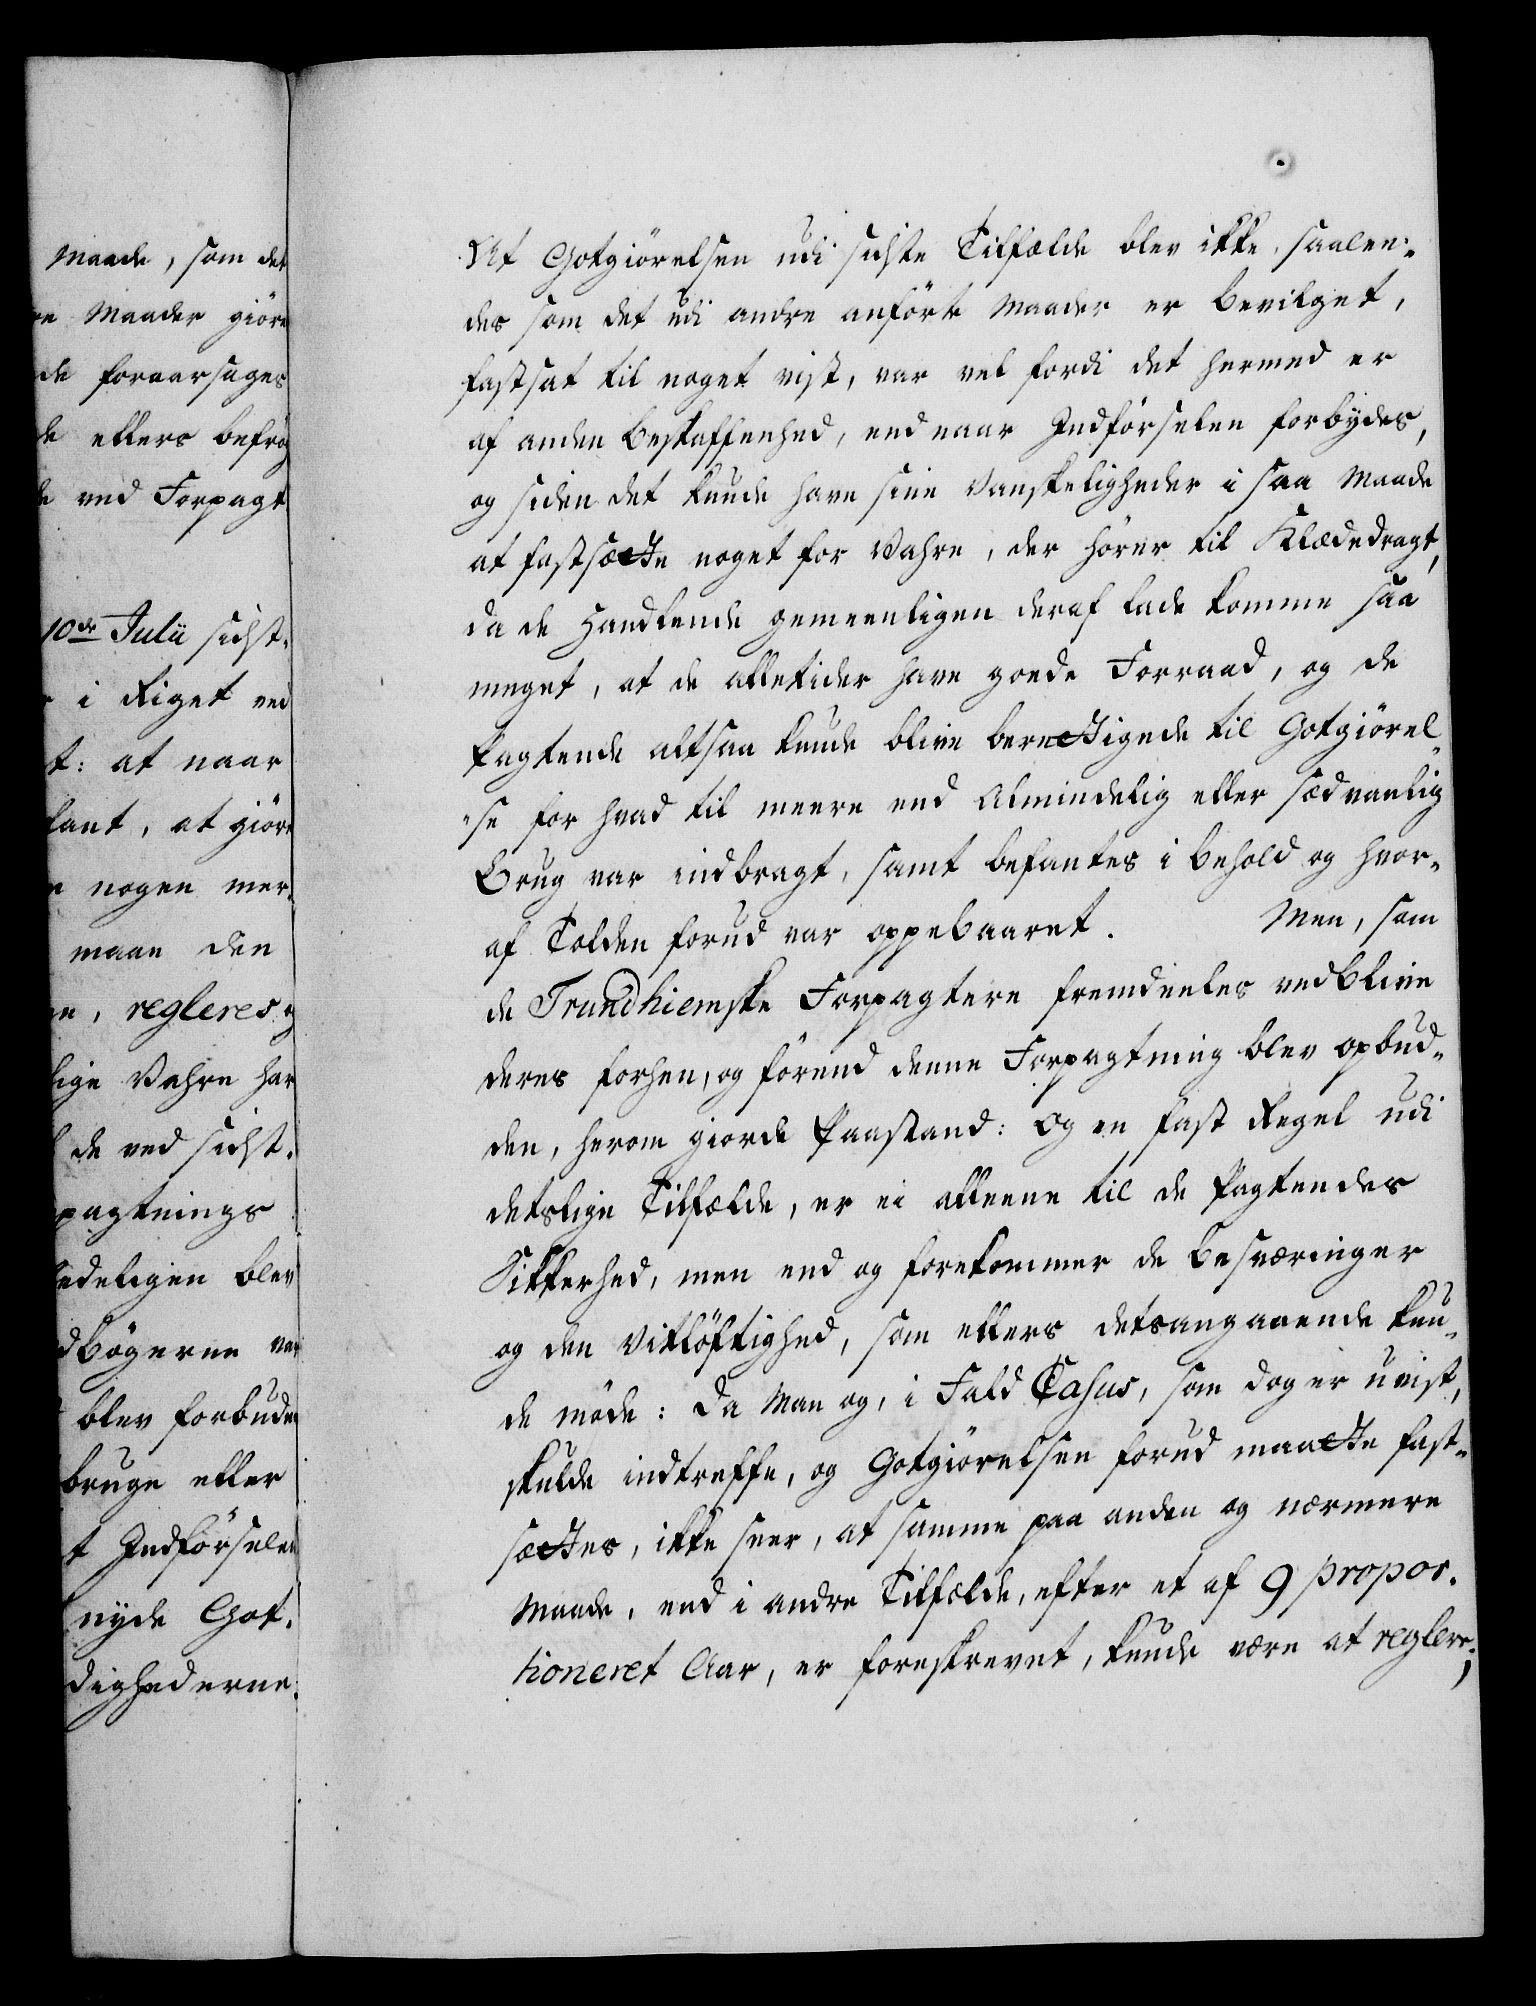 Maade, som det
re Maader giöre
de foraarsages
de ellers befrÿg
de ved Forpagt
10de Julii sidst-
r i Riget ved
t: at naar
kant, at giöre
e nogen mer-
maae den
ge, regleres og
lige Vahre har
l de ved sidst-
pagtnings
edeligen blev
dbögerne var
blev forbuden
bruge eller
t Indförselen
nyde Got-
dighederne.
At Gotgiörelsen udi sidste Tilfælde blev ikke, saalen-
des som det udi andre anförte Maader er bevilget,
fastsat til noget vist, var vel fordi det hermed er
af anden beskaffenhed, end naar Indförselen forbydes,
og siden det kunde have sine Vanskeligheder i saa Maade
at fastsætte noget for Vahre, der hörer til Klædedragt,
da de Handlende gemeenligen deraf lade komme saa
meget, at de alletider have goede Forraad, og de
Pagtende altsaa kunde blive berettigede til Gotgiörel-
-se for hvad til meere end Almindelig eller sædvanlig
Brug var indbragt, samt befantes i behold og hvor-
af Tolden forud var oppebaaret. Men, som
de Trundhiemske Forpagtere fremdeeles vedblive
deres forhen, og förend denne Forpagtning blev opbud-
den, herom giorde Paastand: Og en fast Regel udi
detslige Tilfælde, er ei alleene til de Pagtendes
Sikkerhed, men end og forekommer de besværinger
og den Vitlöftighed, som ellers detsangaaende kun-
de möde: Da Man og, i Fald Casus, som dog er uvist,
skulde indtreffe, og Gotgiörelsen forud maatte fast-
sættes, ikke seer, at samme paa anden og nærmere
Maade, end i andre Tilfælde, efter et af 9 propor-
tioneret Aar, er foreskrevet, kunde være at reglere;